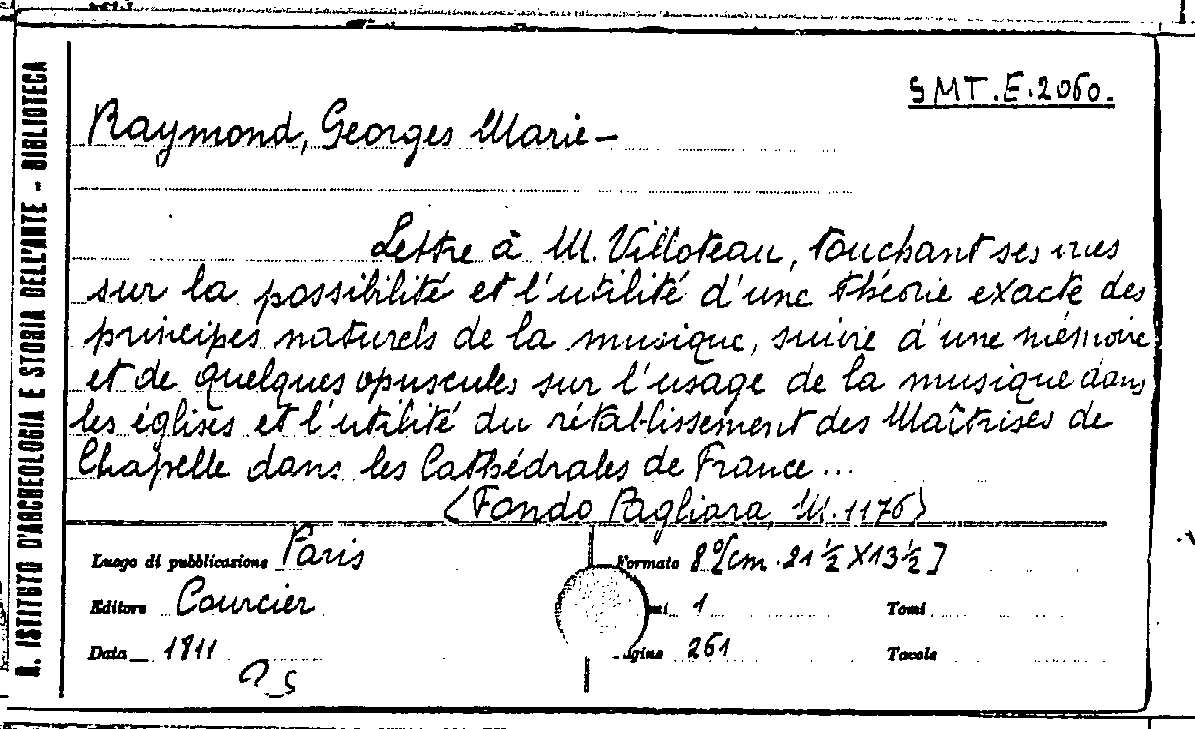 R. ISTITUTO D'ARCHEOLOGIA E STORIA DELL'ARTE - BIBLIOTECA
SMT.E.2060.
Raymond, Georges Marie-
Lettre à M. Villoteau, touchant ses vues
sur la possibilité et l'utilité d'une théorie exacte des
principes naturels de la musique, suivie d'une mémoire
et de quelques opuscules sur l'usage de la musique dans
les églises et l'utilité du rétablissement des Maîtrises de
Chapelle dans les Cathédrales de France...
(Fondo Pagliara, M.1176)
Luogo di pubblicazione Paris
Formato 8º [cm. 21½ X 13½]
Editore Courcier
1 Tomi
Data 1811
261 Tavole